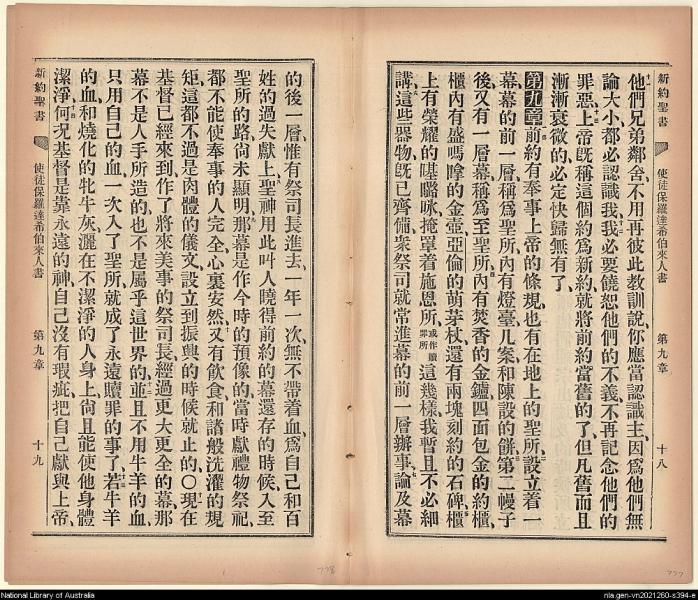 新約聖書 使徒保羅達希伯來人書 第九章 十八
他們兄弟鄰舍、不用再彼此教訓說、你應當認識主、因爲他們無
論大小都必認識我、我必要饒恕他們的不義、不再記念他們的
罪惡、上帝旣稱這個約爲新約、就將前約當舊的了、但凡舊而且
漸漸衰微的、必定快歸無有了、
第九章前約有奉事上帝的條規、也有在地上的聖所、設立着一
幕、幕的前一層稱爲聖所、內有燈臺几案和陳設的餅、第二幔子
後又有一層幕稱爲至聖所、內有焚香的金鑪、四面包金的約櫃、
櫃內有盛嗎嗱的金壺、亞倫的萌芽杖、還有兩塊刻約的石碑、櫃
上有榮耀的𠼻㗉咏、掩罩着施恩所、或作贖罪所這幾樣、我暫且不必細
講、這些器物旣已齊備、衆祭司就常進幕的前一層辦事、論及幕
新約聖書 使徒保羅達希伯來人書 第九章 十九
的後一層、惟有祭司長進去、一年一次、無不帶着血、爲自己和百
姓的過失獻上、聖神用此叫人曉得前約的幕還存的時候、入至
聖所的路尙未顯明、那幕是作今時的預像的、當時獻禮物祭祀、
都不能使奉事的人完全心裏安然、又有飮食和諸般洗濯的規
矩、這都不過是肉體的儀文、設立到振興的時候就止的、〇現在
基督已經來到、作了將來美事的祭司長、經過更大更全的幕、那
幕不是人手所造的、也不是屬乎這世界的、並且不用牛羊的血、
只用自己的血、一次入了聖所、就成了永遠贖罪的事了、若牛羊
的血、和燒化的牝牛灰、灑在不潔淨的人身上、尙且能使他身體
潔淨、何況基督是靠永遠的神、自己沒有瑕疵、把自己獻與上帝、
778
777
National Library of Australia
nla.gen-vn2021260-s394-e